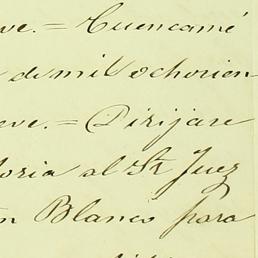 ve. = Cuencamé
de mil ochocien-
eve. = Dirijase
oria al Sr Juez
n Blanco para